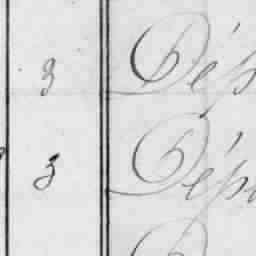 3 Dép
3 Dép